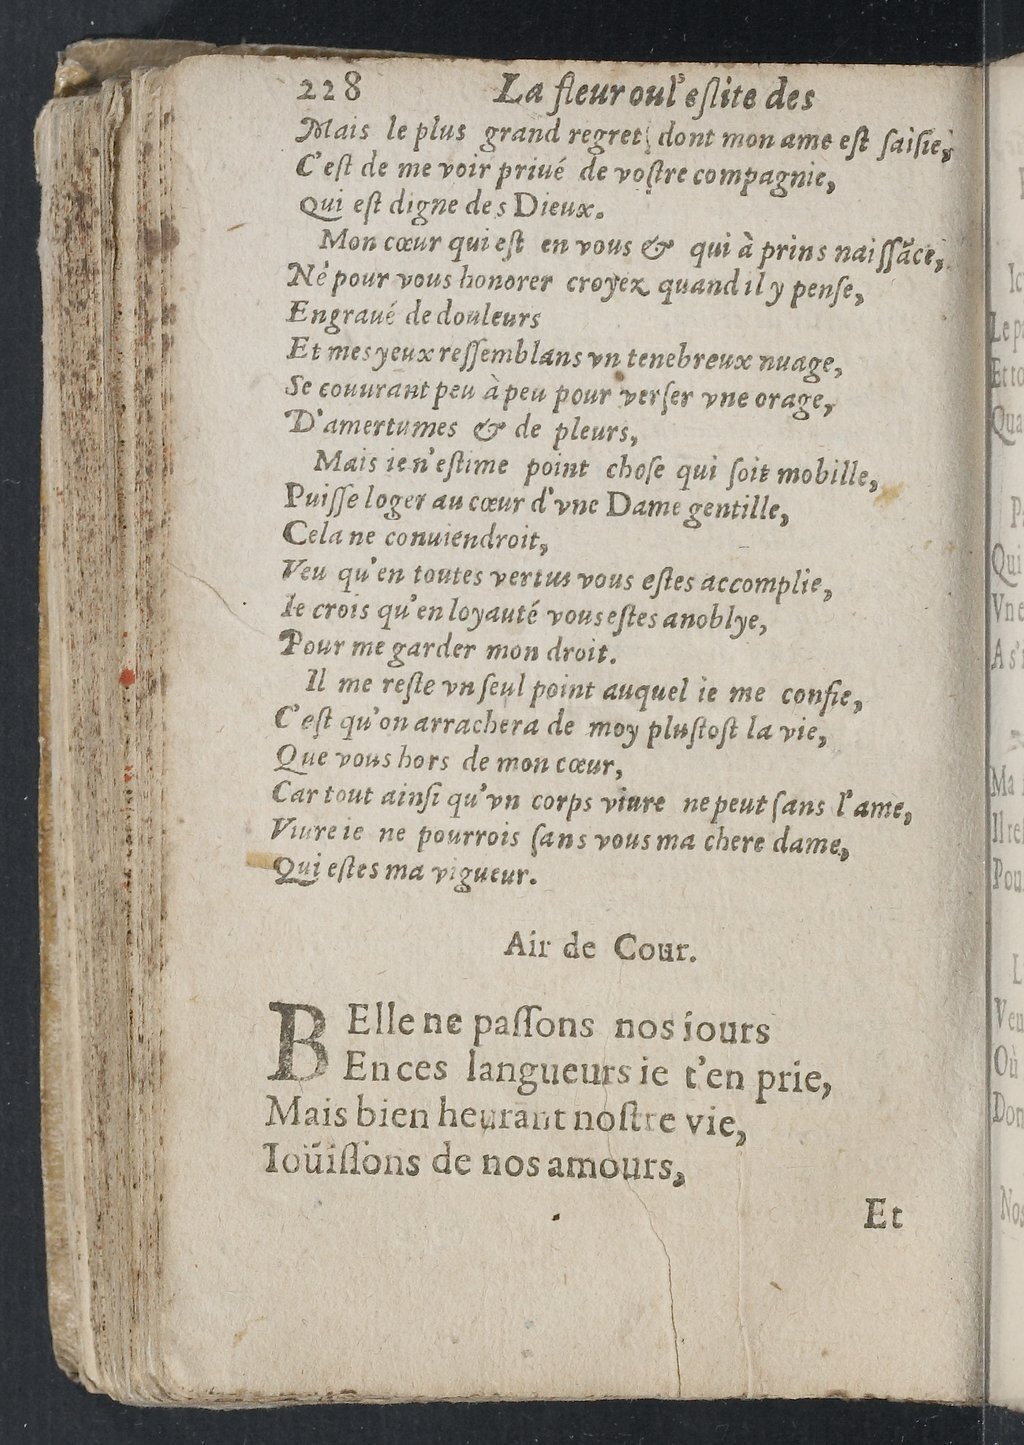 228 La fleur oul'eſlite des
Mais le plus grand regret, dont mon ame eſt ſaiſie,
C'eſt de me voir priué de voſtre compagnie,
Qui eſt digne des Dieux.
Mon cœur qui eſt en vous & qui à prins naiſſãce,
Ne pour vous honorer croyez quand il y penſe,
Engraué de douleurs
Et mes yeux reſſemblans vn tenebreux nuage,
Se couurant peu à peu pour verſer vne orage,
D'amertumes & de pleurs,
Mais ie n'eſtime point choſe qui ſoit mobille,
Puiſſe loger au cœur d'vne Dame gentille,
Cela ne conuiendroit,
Veu qu'en toutes vertus vous eſtes accomplie,
Ie crois qu'en loyauté vous eſtes anoblye,
Pour me garder mon droit.
Il me reſte vn ſeul point auquel ie me conſie,
C'eſt qu'on arrachera de moy pluſtoſt la vie,
Que vous hors de mon cœur,
Car tout ainſi qu'vn corps viure ne peut ſans l'ame,
Viure ie ne pourrois ſans vous ma chere dame,
Qui eſtes ma vigueur.
Air de Cour.
BElle ne paſſons nos iours
En ces langueurs ie t'en prie,
Mais bien heurant noſtre vie,
Ioüiſſons de nos amours,
Et
Ic
Le p
Et to
Qua
P
Qui
Vne
A s'
Ma
Il re
Pou
L
Veu
Où
Don
Nos